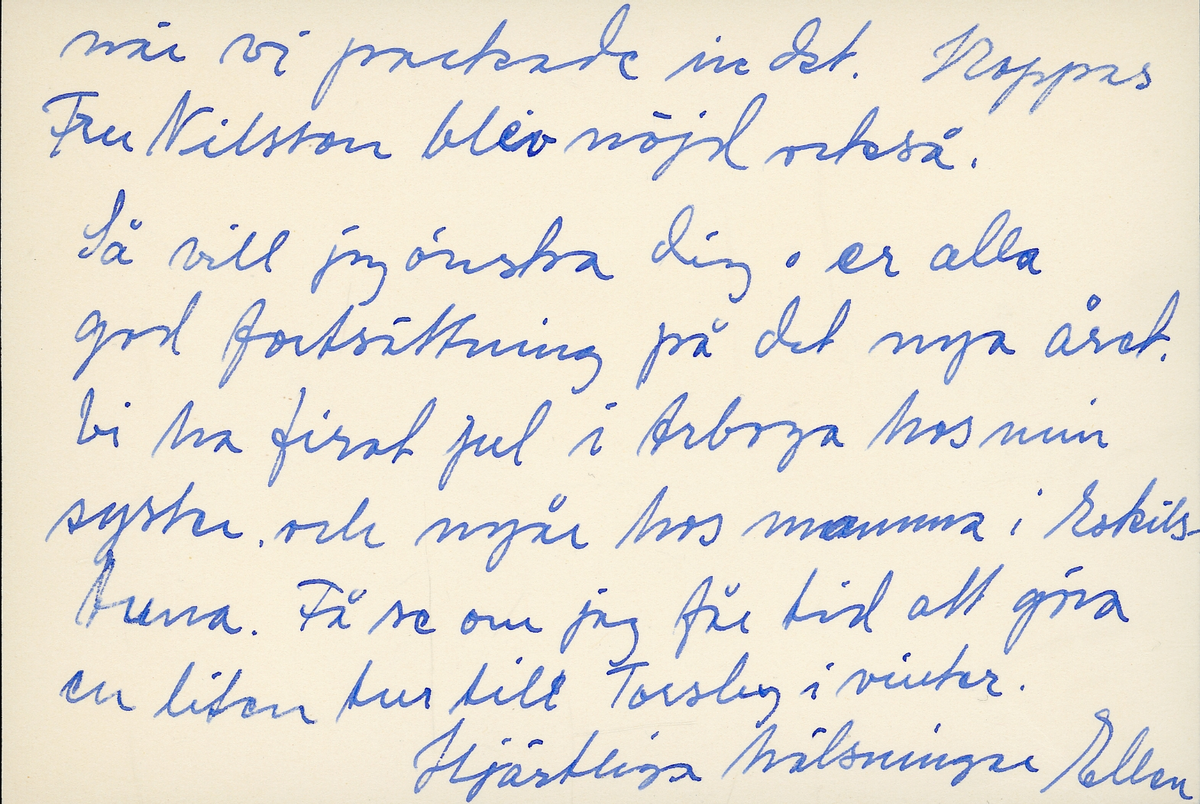 när vi packade in det. Hoppas
Fru Nilsson blev nöjd också.
Så vill jag önska dig o er alla
god fortsättning på det nya året.
Vi ha firat jul i Arboga hos min
syster, och nyår hos mamma i Eskils-
tuna. Få se om jag får tid att göra
en liten tur till Torsby i vinter.
Hjärtliga hälsningar Ellen